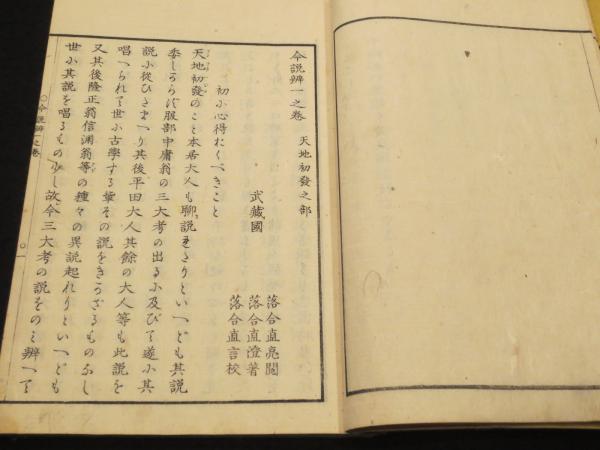 今説辨一之巻　天地初發之部
落合直亮閲
武藏國　落合直澄著
落合直言校
初小心得おくべきこと
天地初發のこと本居大人も聊説まさりといへども其説
委しからず服部中庸翁の三大考の出る小及びて遂小其
説小從ひたまへり其後平田大人其餘の大人等も此説を
唱へられて世小古學する輩その説をきかざるものなし
又其後隆正翁信淵翁等の種々の異説起れりといへども
世小其説を唱るもの少し故今三大考の説をのミ辨へて
○今説辨一之巻
○一